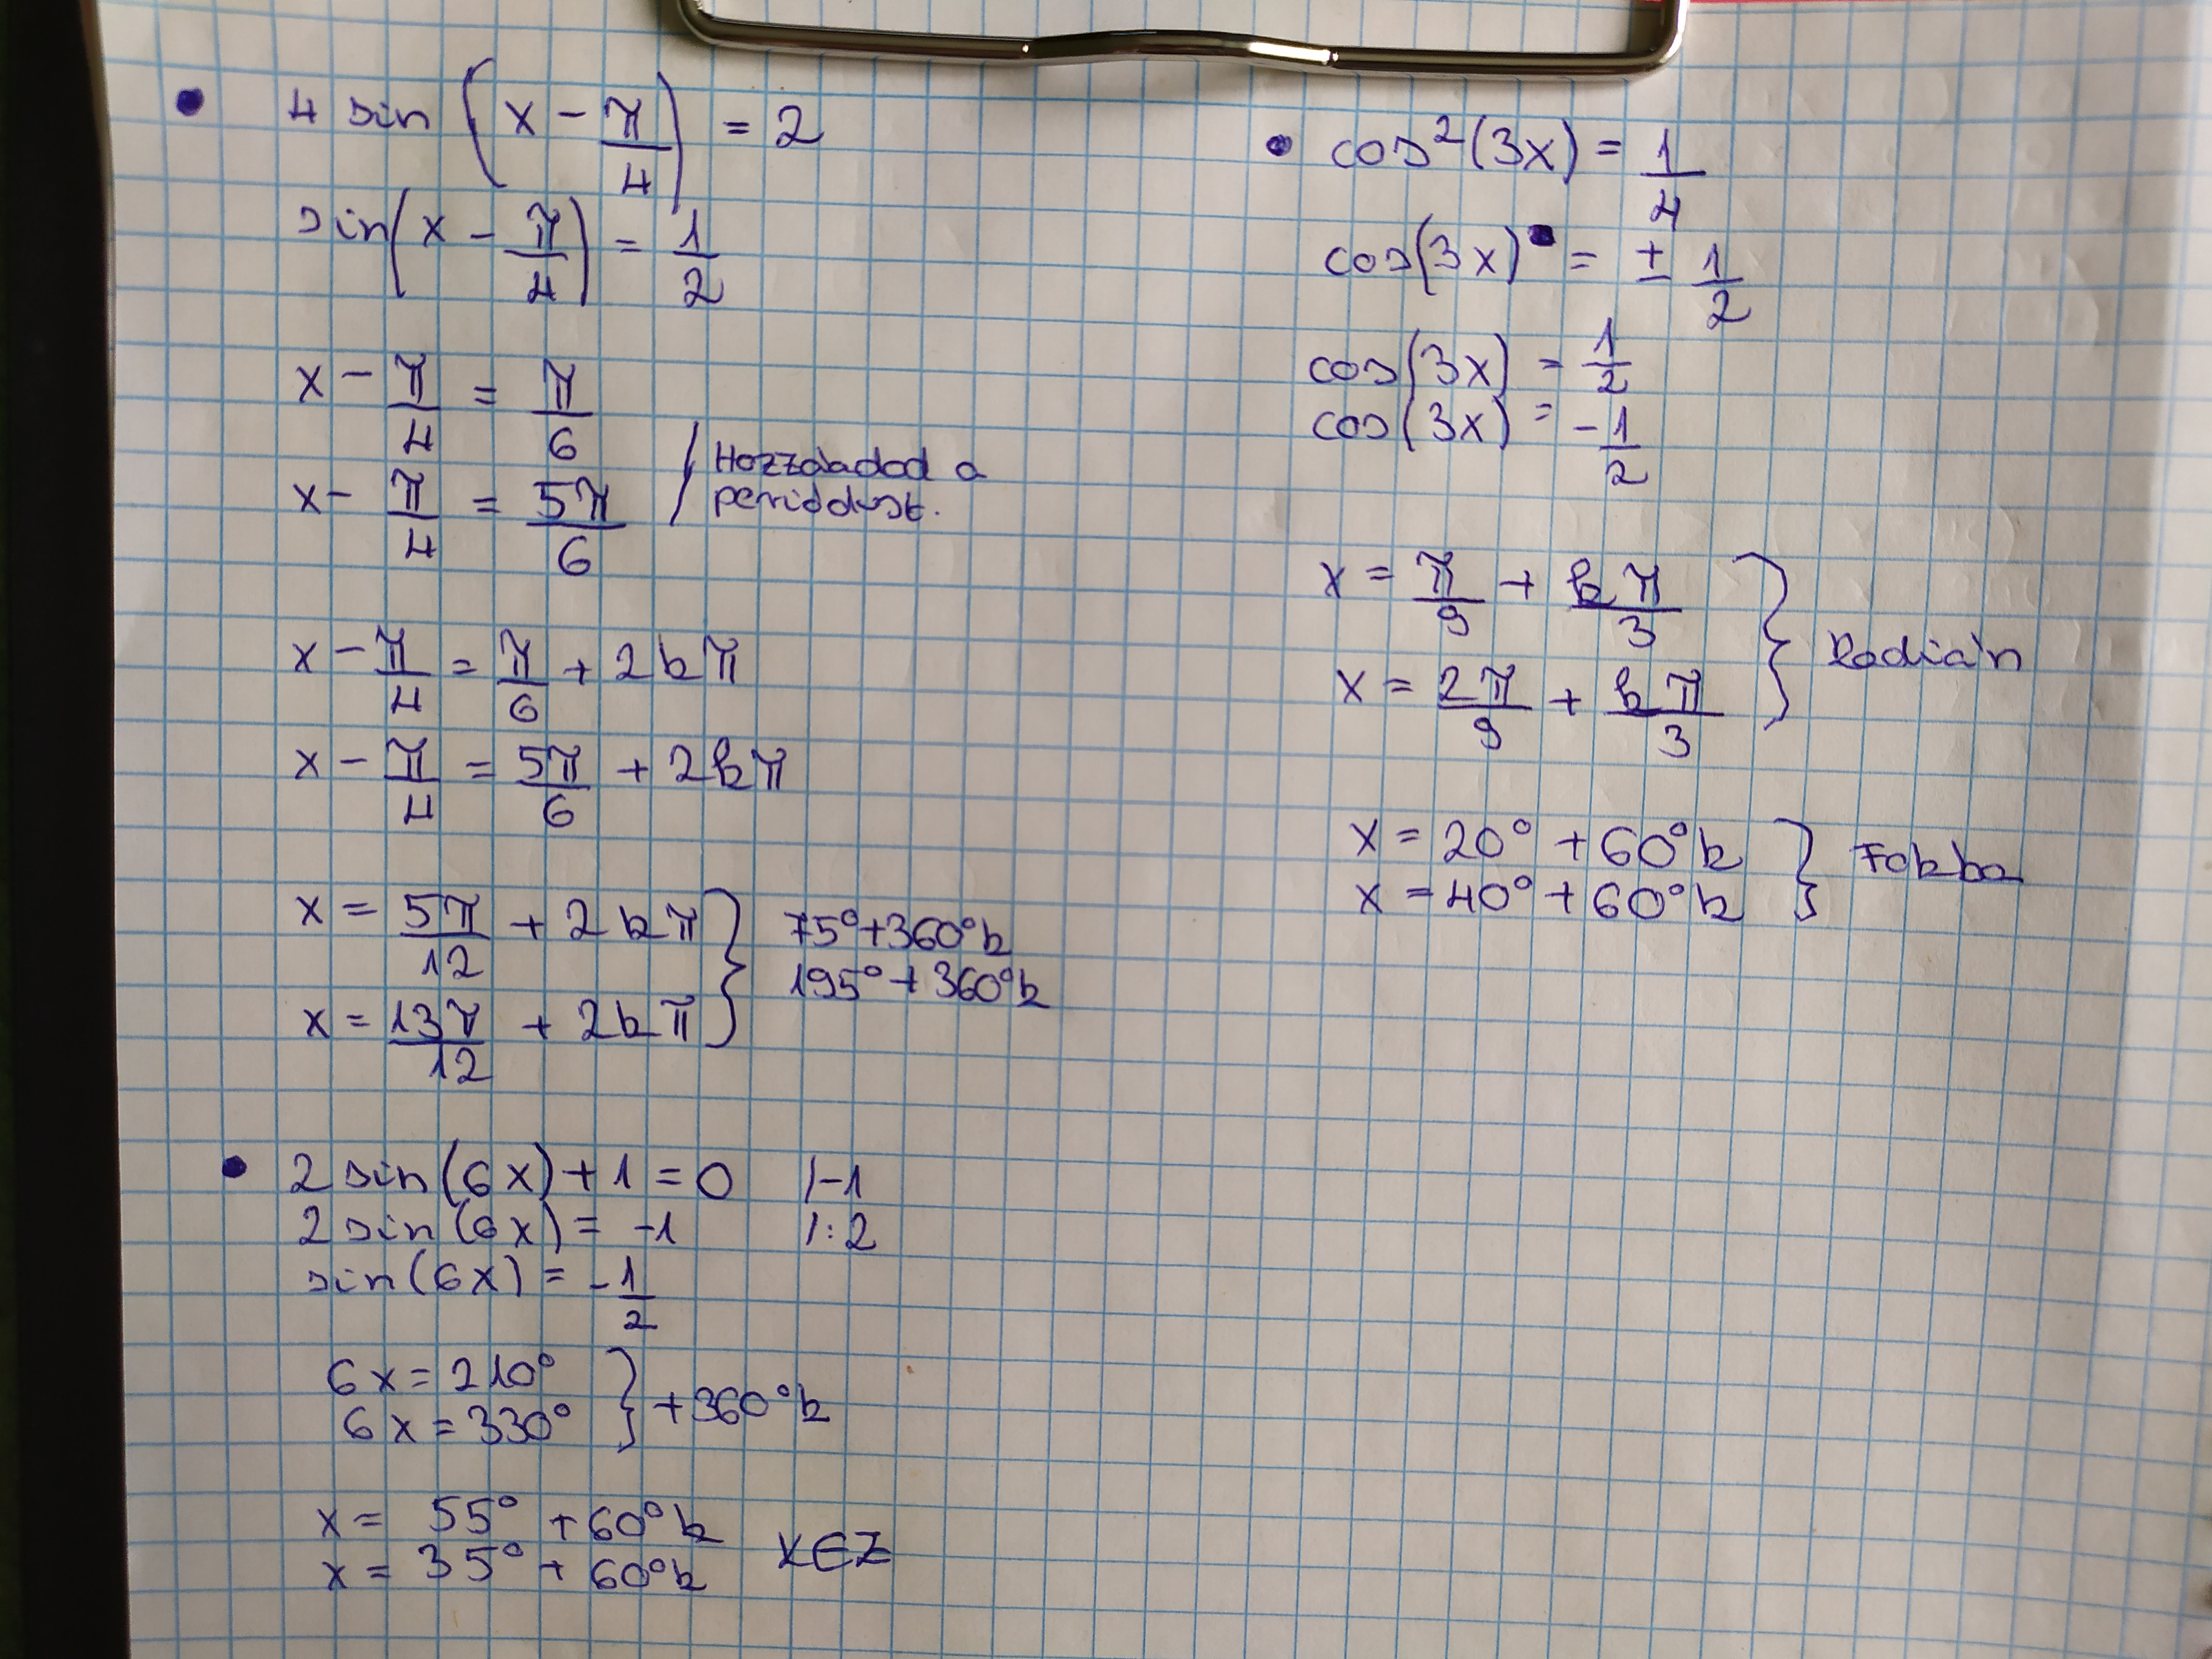 • 4 sin (x - π/4) = 2
sin(x - π/4) = 1/2
x - π/4 = π/6
x - π/4 = 5π/6 / Hozzáadod a periódust.
x - π/4 = π/6 + 2kπ
x - π/4 = 5π/6 + 2kπ
x = 5π/12 + 2kπ } 75° + 360°k
x = 13π/12 + 2kπ } 195° + 360°k
• 2 sin(6x) + 1 = 0 /-1
2 sin(6x) = -1 /:2
sin(6x) = -1/2
6x = 210° } +360°k
6x = 330°
x = 55° + 60°k
x = 35° + 60°k x∈Z
• cos²(3x) = 1/4
cos(3x) = ± 1/2
cos(3x) = 1/2
cos(3x) = -1/2
x = π/9 + kπ/3 } Radián
x = 2π/9 + kπ/3
x = 20° + 60°k } Fokba
x = 40° + 60°k